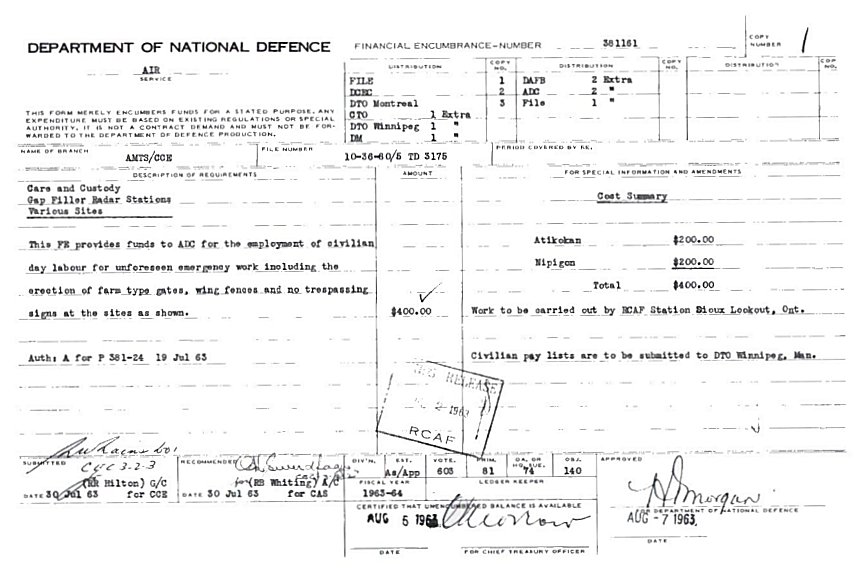 DEPARTMENT OF NATIONAL DEFENCE
AIR
SERVICE
THIS FORM MERELY ENCUMBERS FUNDS FOR A STATED PURPOSE. ANY
EXPENDITURE MUST BE BASED ON EXISTING REGULATIONS OR SPECIAL
AUTHORITY. IT IS NOT A CONTRACT DEMAND AND MUST NOT BE FOR-
WARDED TO THE DEPARTMENT OF DEFENCE PRODUCTION.
FINANCIAL ENCUMBRANCE-NUMBER 381161
COPY NUMBER 1
DISTRIBUTION COPY NO. DISTRIBUTION COPY NO. DISTRIBUTION COPY NO.
FILE 1 DAFB 2 Extra
2 ADC 2 "
DTO Montreal 3 File 1 "
CTO 1 Extra
DTO Winnipeg 1 "
DM 1 "
NAME OF BRANCH AMTS/CCE
FILE NUMBER 10-36-60/5 TD 3175
PERIOD COVERED BY
DESCRIPTION OF REQUIREMENTS AMOUNT FOR SPECIAL INFORMATION AND AMENDMENTS
Care and Custody
Gap Filler Radar Stations
Various Sites
Cost Summary
This FE provides funds to ADC for the employment of civilian
day labour for unforeseen emergency work including the
erection of farm type gates, wing fences and no trespassing
signs at the sites as shown.
$400.00
Atikokan $200.00
Nipigon $200.00
Total $400.00
Work to be carried out by RCAF Station Sioux Lookout, Ont.
Auth: A for P 381-24 19 Jul 63
Civilian pay lists are to be submitted to DTO Winnipeg, Man.
RELEASE
2 1963
RCAF
SUBMITTED
(RR Hilton) G/C
DATE 30 Jul 63 for CCE
RECOMMENDED
for (RB Whiting) A/C
DATE 30 Jul 63 for CAS
DIV'N. EST. VOTE. PRIM. OBJ.
As/App 603 81 74 140
FISCAL YEAR LEDGER KEEPER
1963-64
CERTIFIED THAT UNENCUMBERED BALANCE IS AVAILABLE
AUG 5 1963
DATE FOR CHIEF TREASURY OFFICER
APPROVED
Morgan
FOR DEPARTMENT OF NATIONAL DEFENCE
AUG -7 1963
DATE